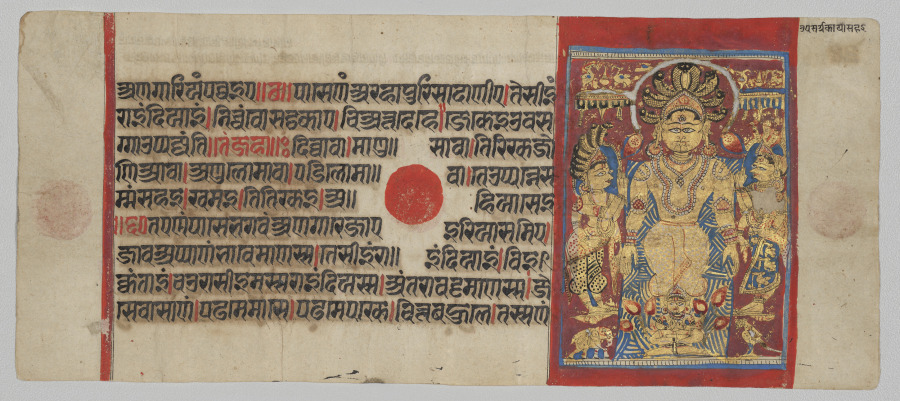 अणगारियं पव्वइए॥छ॥पासेणं अरहा पुरिसादाणीए।तेसीइं
राइंदियाइं।निच्चं वोसट्ठकाए।चियत्तदेहे।जे केइ उवस
ग्गा उप्पज्जंति॥तं जहा॥छ॥दिव्वा वा।माणु॥ सा वा।तिरिक्खजो
णिआ वा।अणुलोमा वा।पडिलोमा॥ वा।ते उप्पन्ने स
म्मं सहइ।खमइ।तितिक्खइ।अ॥ हियासइ
॥छ॥तएणं पासे भगवं अणगारे जाए इरियासमिए।
जाव अप्पाणं भावेमाणस्स।तेसीइं रा॥ इंदियाइं।विइ
क्कंताइं।चउरासीइमस्स राइंदियस्स।अंतरा वट्टमाणस्स।जे
से वासाणं।पढमे मासे।पढमे पक्खे।चित्तबहुले।तस्सणं